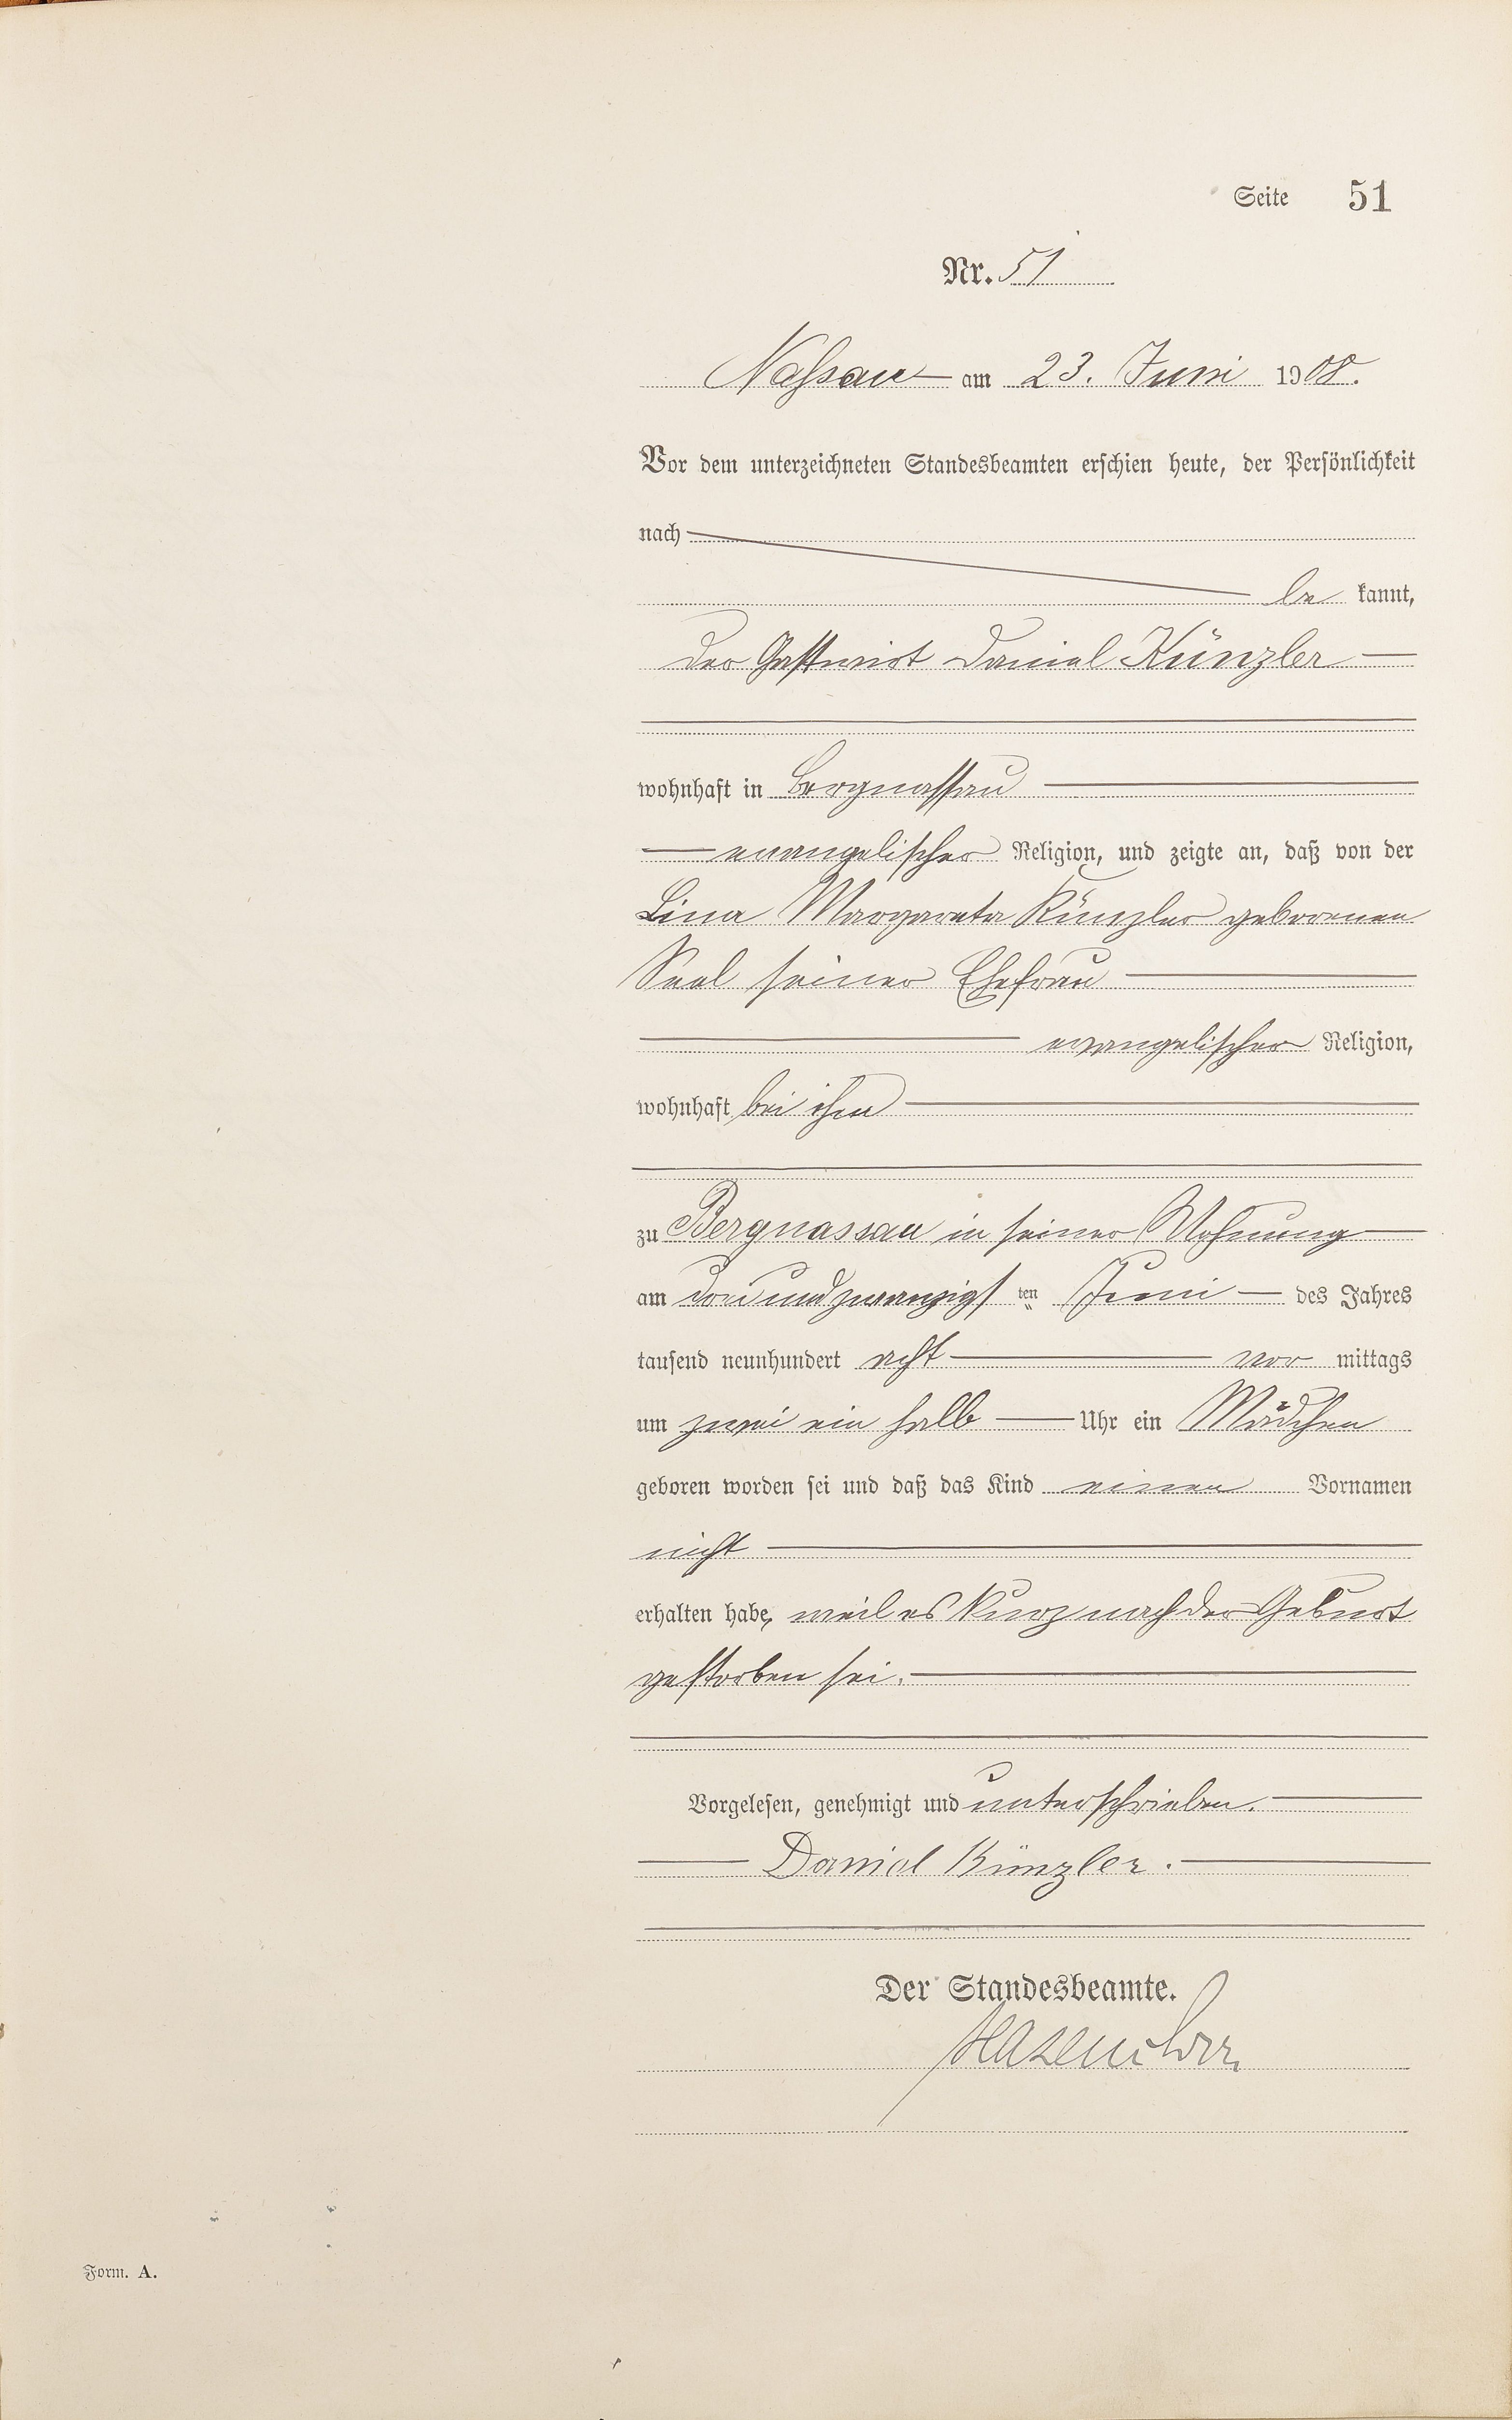 Seite 51
Nr. 51
Nassau am 23. Juni 1908.
Vor dem unterzeichneten Standesbeamten erschien heute, der Persönlichkeit
nach
be kannt,
der Gastwirt Daniel Künzler
wohnhaft in Bergnassau
evangelischer Religion, und zeigte an, daß von der
Lina Margareta Künzler geborenen
Saal seiner Ehefrau
evangelischer Religion,
wohnhaft bei ihm
zu Bergnassau in seiner Wohnung
am drei und zwanzigs ten Juni des Jahres
tausend neunhundert acht vor mittags
um zwei ein halb Uhr ein Mädchen
geboren worden sei und daß das Kind einen Vornamen
nicht
erhalten habe, weil es kurz nach der Geburt
gestorben sei.
Vorgelesen, genehmigt und unterschrieben.
Daniel Künzler.
Der Standesbeamte.
Form. A.